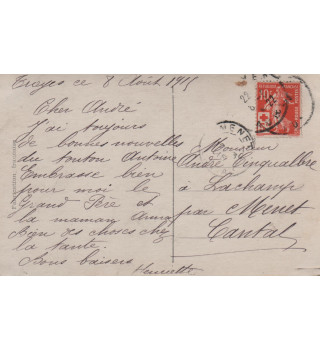 Troyes ce 8 Août 1915
Cher André
J'ai toujours
de bonnes nouvelles
du tonton Antoine
Embrasse bien
pour moi le
Grand Père et
la maman Anna
Bien des choses chez
la tante.
Bons baisers
Henriette
Monsieur
André Cinqualbre
à Lachamp
par Menet
Cantal